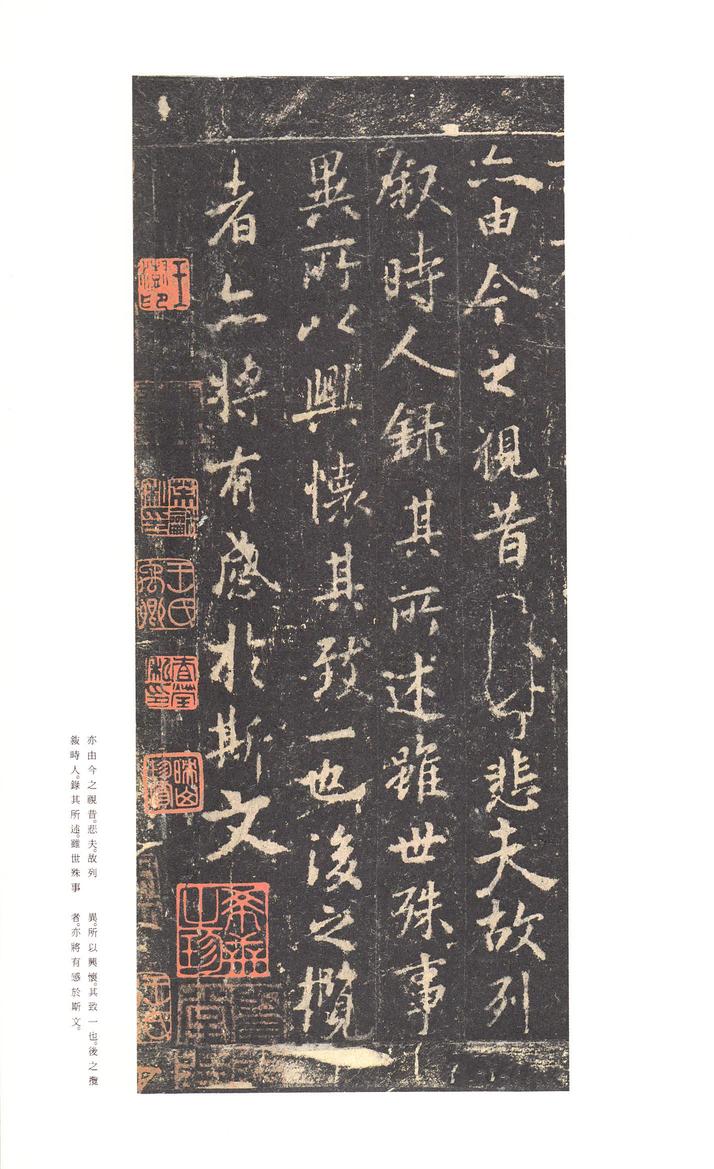 亦由今之視昔悲夫故列
叙時人錄其所述雖世殊事
異所以興懷其致一也後之攬
者亦將有感於斯文
亦由今之視昔。悲夫。故列
敍時人。錄其所述。雖世殊事
異。所以興懷。其致一也。後之攬
者。亦將有感於斯文。